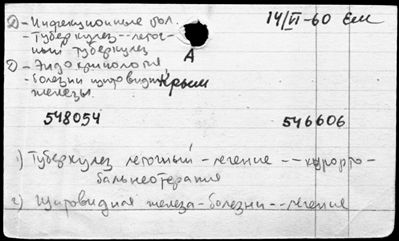 1) - Инфекционные бол. 14/VI-60 Ем
- Туберкулез -- легоч-
ный туберкулез А
2) - Эндокринология,
- болезни щитовидн. Крым
железы.
548054 546606
1) Туберкулез легочный - лечение -- курорто-
бальнеотерапия
2) Щитовидная железа - болезни -- лечение